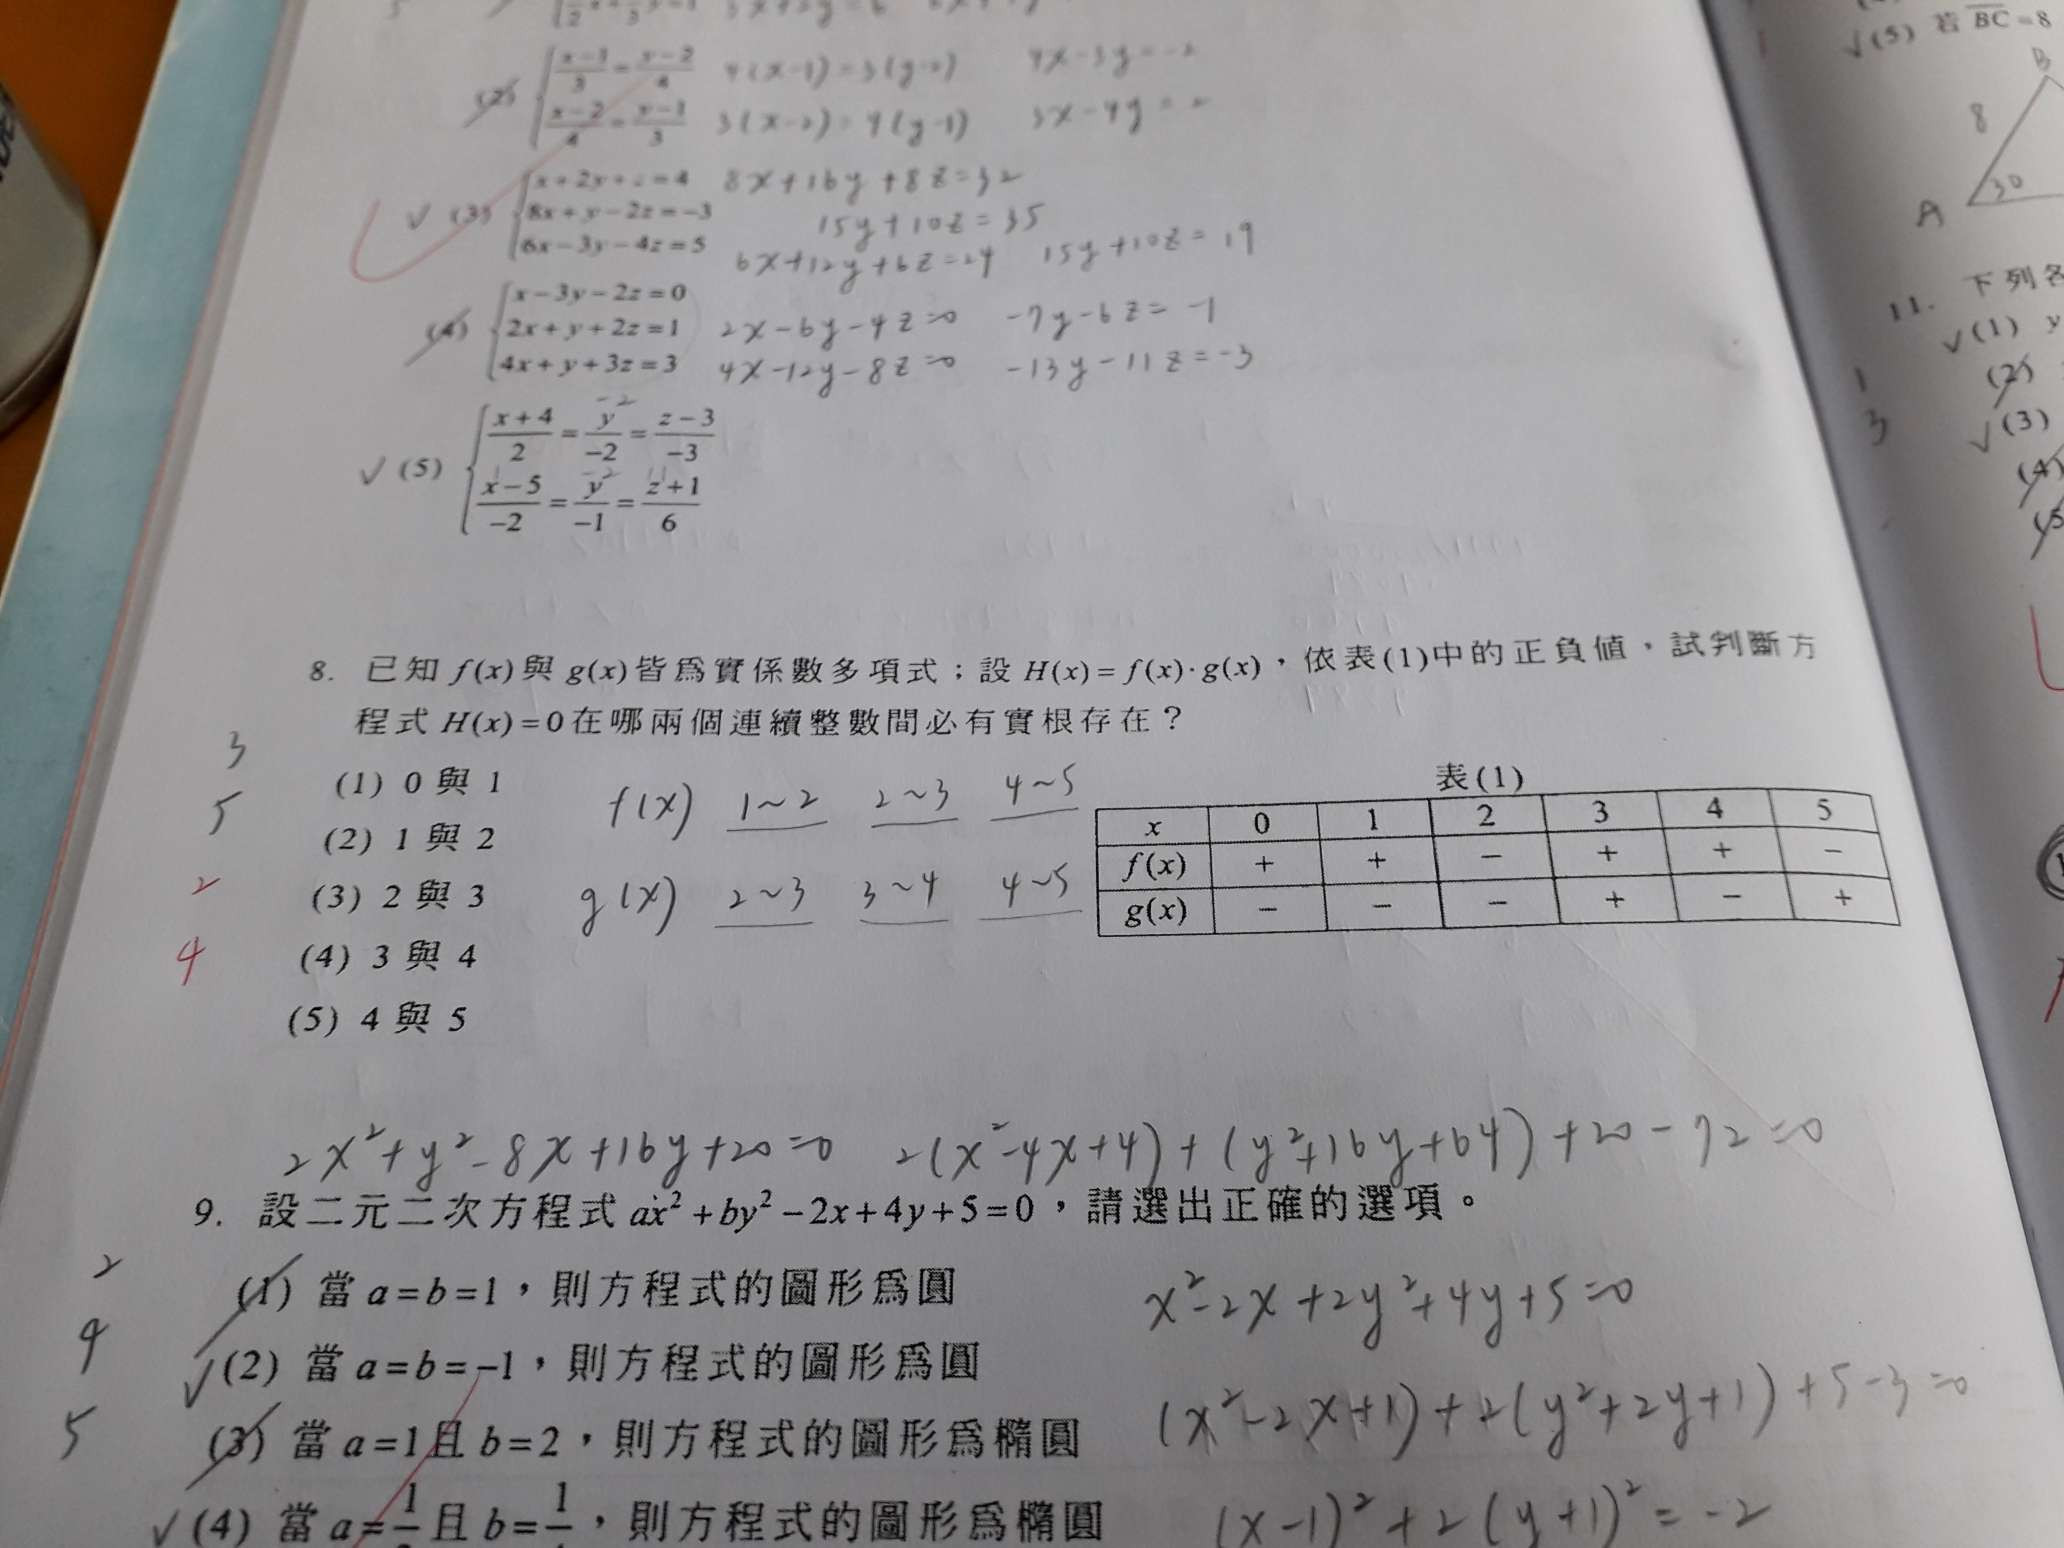 (2) x-1/3 = y-2/4 4(x-1)=3(y-2) 4x-3y=-2
x-2/4 = y-1/3 3(x-2)=4(y-1) 3x-4y=2
✓ (3) x+2y+z=4 8x+16y+8z=32
8x+y-2z=-3 15y+10z=35
6x-3y-4z=5 6x+12y+6z=24 15y+10z=19
(4) x-3y-2z=0
2x+y+2z=1 2x-6y-4z=0 -7y-6z=-1
4x+y+3z=3 4x-12y-8z=0 -13y-11z=-3
✓ (5) x+4/2 = y/-2 = z-3/-3
x-5/-2 = y/-1 = z+1/6
8. 已知 f(x)與 g(x)皆為實係數多項式；設 H(x)=f(x)·g(x)，依表(1)中的正負值，試判斷方
程式 H(x)=0在哪兩個連續整數間必有實根存在？
3
5
2
4
(1) 0 與 1
(2) 1 與 2
(3) 2 與 3
(4) 3 與 4
(5) 4 與 5
f(x) 1~2 2~3 4~5
g(x) 2~3 3~4 4~5
表(1)
x 0 1 2 3 4 5
f(x) + + − + + −
g(x) − − − + − +
2x²+y²-8x+16y+20=0 2(x²-4x+4)+(y²+16y+64)+20-72=0
9. 設二元二次方程式 ax²+by²-2x+4y+5=0，請選出正確的選項。
2
4
5
(1) 當 a=b=1，則方程式的圖形為圓
✓(2) 當 a=b=-1，則方程式的圖形為圓
(3) 當 a=1且 b=2，則方程式的圖形為橢圓
✓(4) 當 a= 且 b= ，則方程式的圖形為橢圓
x²-2x+2y²+4y+5=0
(x²-2x+1)+2(y²+2y+1)+5-3=0
(x-1)²+2(y+1)²=-2
✓(5) 若 BC=8
B
8
A
30
11. 下列各
1
3
✓(1) y
(2)
✓(3)
(4)
(5